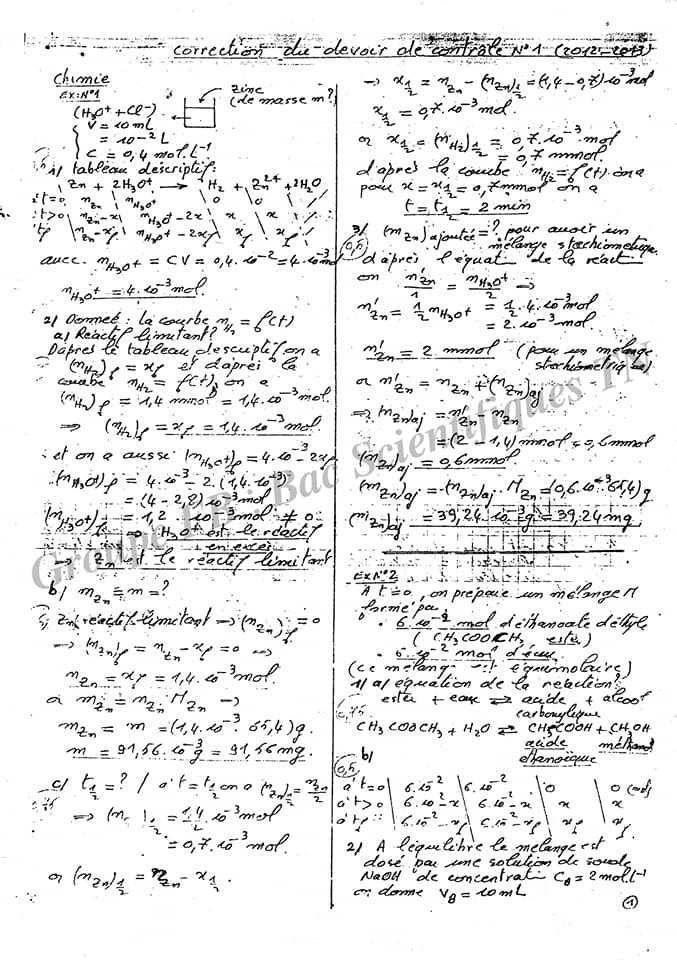 Correction du devoir de contrôle N°1 (2012-2013)
Chimie
Ex: N°1
zinc
(de masse m?)
(H3O+ + Cl-)
V = 10 mL
= 10^-2 L
C = 0,4 mol.L^-1
1) tableau descriptif:
Zn + 2H3O+ → H2 + Zn2+ + 2H2O
t=0 nZn | nH3O+ | 0 | 0
t>0 nZn-x | nH3O+-2x | x | x
tf nZn-xf | nH3O+-2xf | xf | xf
avec nH3O+ = CV = 0,4.10^-2 = 4.10^-3 mol
nH3O+ = 4.10^-3 mol.
2) Donneé: la courbe nH2 = f(t)
a) Réactif limitant?
D'après le tableau descriptif on a
(nH2)f = xf et d'après la
courbe nH2 = f(t) on a
(nH2)f = 1,4 mmol = 1,4.10^-3 mol
⇒ (nH2)f = xf = 1,4.10^-3 mol.
et on a aussi (nH3O+)f = 4.10^-3 - 2xf
(nH3O+)f = 4.10^-3 - 2.(1,4.10^-3)
= (4-2,8)10^-3 mol
(nH3O+)f = 1,2 10^-3 mol ≠ 0
⇒ H3O+ est le réactif
en excès
⇒ Zn est le réactif limitant
b) mZn = m = ?
Zn réactif limitant → (nZn)f = 0
⇒ (nZn)f = nZn - xf = 0 ⇒
nZn = xf = 1,4.10^-3 mol.
or mZn = nZn.MZn
mZn = m = (1,4.10^-3. 65,4) g.
m = 91,56.10^-3 g = 91,56 mg.
c) t1/2 = ? / à t = t1/2 on a (nZn)1/2 = nZn/2
⇒ (n )1/2 = 1,4/2 10^-3 mol
= 0,7.10^-3 mol
or (nZn)1/2 = nZn - x1/2.
⇒ x1/2 = nZn - (nZn)1/2 = (1,4-0,7)10^-3 mol
x1/2 = 0,7.10^-3 mol.
or x1/2 = (nH2)1/2 = 0,7.10^-3 mol
= 0,7 mmol.
d'après la courbe nH2 = f(t) on a
pour x = x1/2 = 0,7 mmol on a
t = t1/2 = 2 min
3) (mZn)ajoutée = ? pour avoir un
0,5 mélange stœchiométrique
d'après l'équat de la react
on n'Zn/1 = nH3O+/2 ⇒
n'Zn = 1/2 nH3O+ = 1/2.4.10^-3
= 2.10^-3 mol.
n'Zn = 2 mmol (pour un mélange
stœchiométrique)
or n'Zn = nZn + (nZn)aj
⇒ (nZn)aj = n'Zn - nZn
= (2-1,4) mmol = 0,6 mmol
(nZn)aj = 0,6 mmol
(mZn)aj = (nZn)aj.MZn = (0,6.10^-3.65,4) g
(mZn)aj = 39,24.10^-3 g = 39,24 mg
Ex N°2
A t=0, on prépare un mélange M
formé par
• 6.10^-2 mol d'éthanoate d'éthyle
(CH3COOCH3 ester)
• 6.10^-2 mol d'eau
(ce mélange est équimolaire)
1) a) équation de la réaction?
ester + eau ⇄ acide + alcool
0,75 carboxylique
CH3COOCH3 + H2O ⇄ CH3COOH + CH3OH
acide méthanol
éthanoïque
b)
0,5
à t=0 | 6.10^-2 | 6.10^-2 | 0 | 0 (mol)
à t>0 | 6.10^-2 - x | 6.10^-2 - x | x | x
à tf | 6.10^-2 - xf | 6.10^-2 - xf | xf | xf
2) A l'équilibre le mélange est
dosé par une solution de soude
NaOH de concentrati CB = 2 mol.L^-1
on donne VB = 10 mL
1
Groupe FB: Bac Scientifiques TN